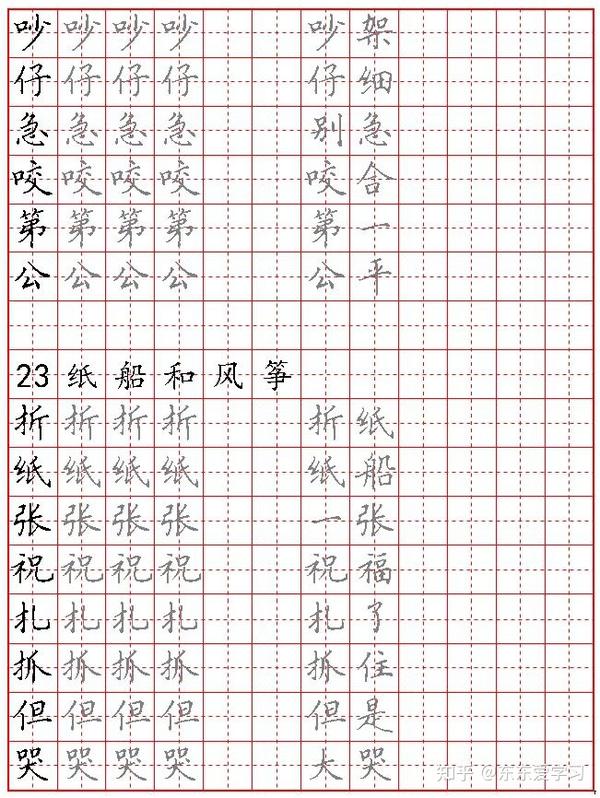 吵吵吵吵 吵架
仔仔仔仔 仔细
急急急急 别急
咬咬咬咬 咬合
第第第第 第一
公公公公 公平
23 纸船和风筝
折折折折 折纸
纸纸纸纸 纸船
张张张张 一张
祝祝祝祝 祝福
扎扎扎扎 扎了
抓抓抓抓 抓住
但但但但 但是
哭哭哭哭 大哭
知乎 @东东爱学习